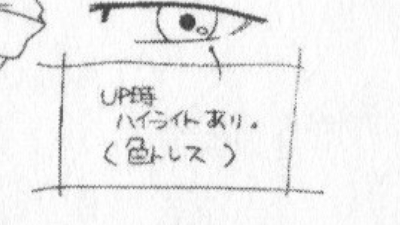 UP時
ハイライトあり。
(色トレス)